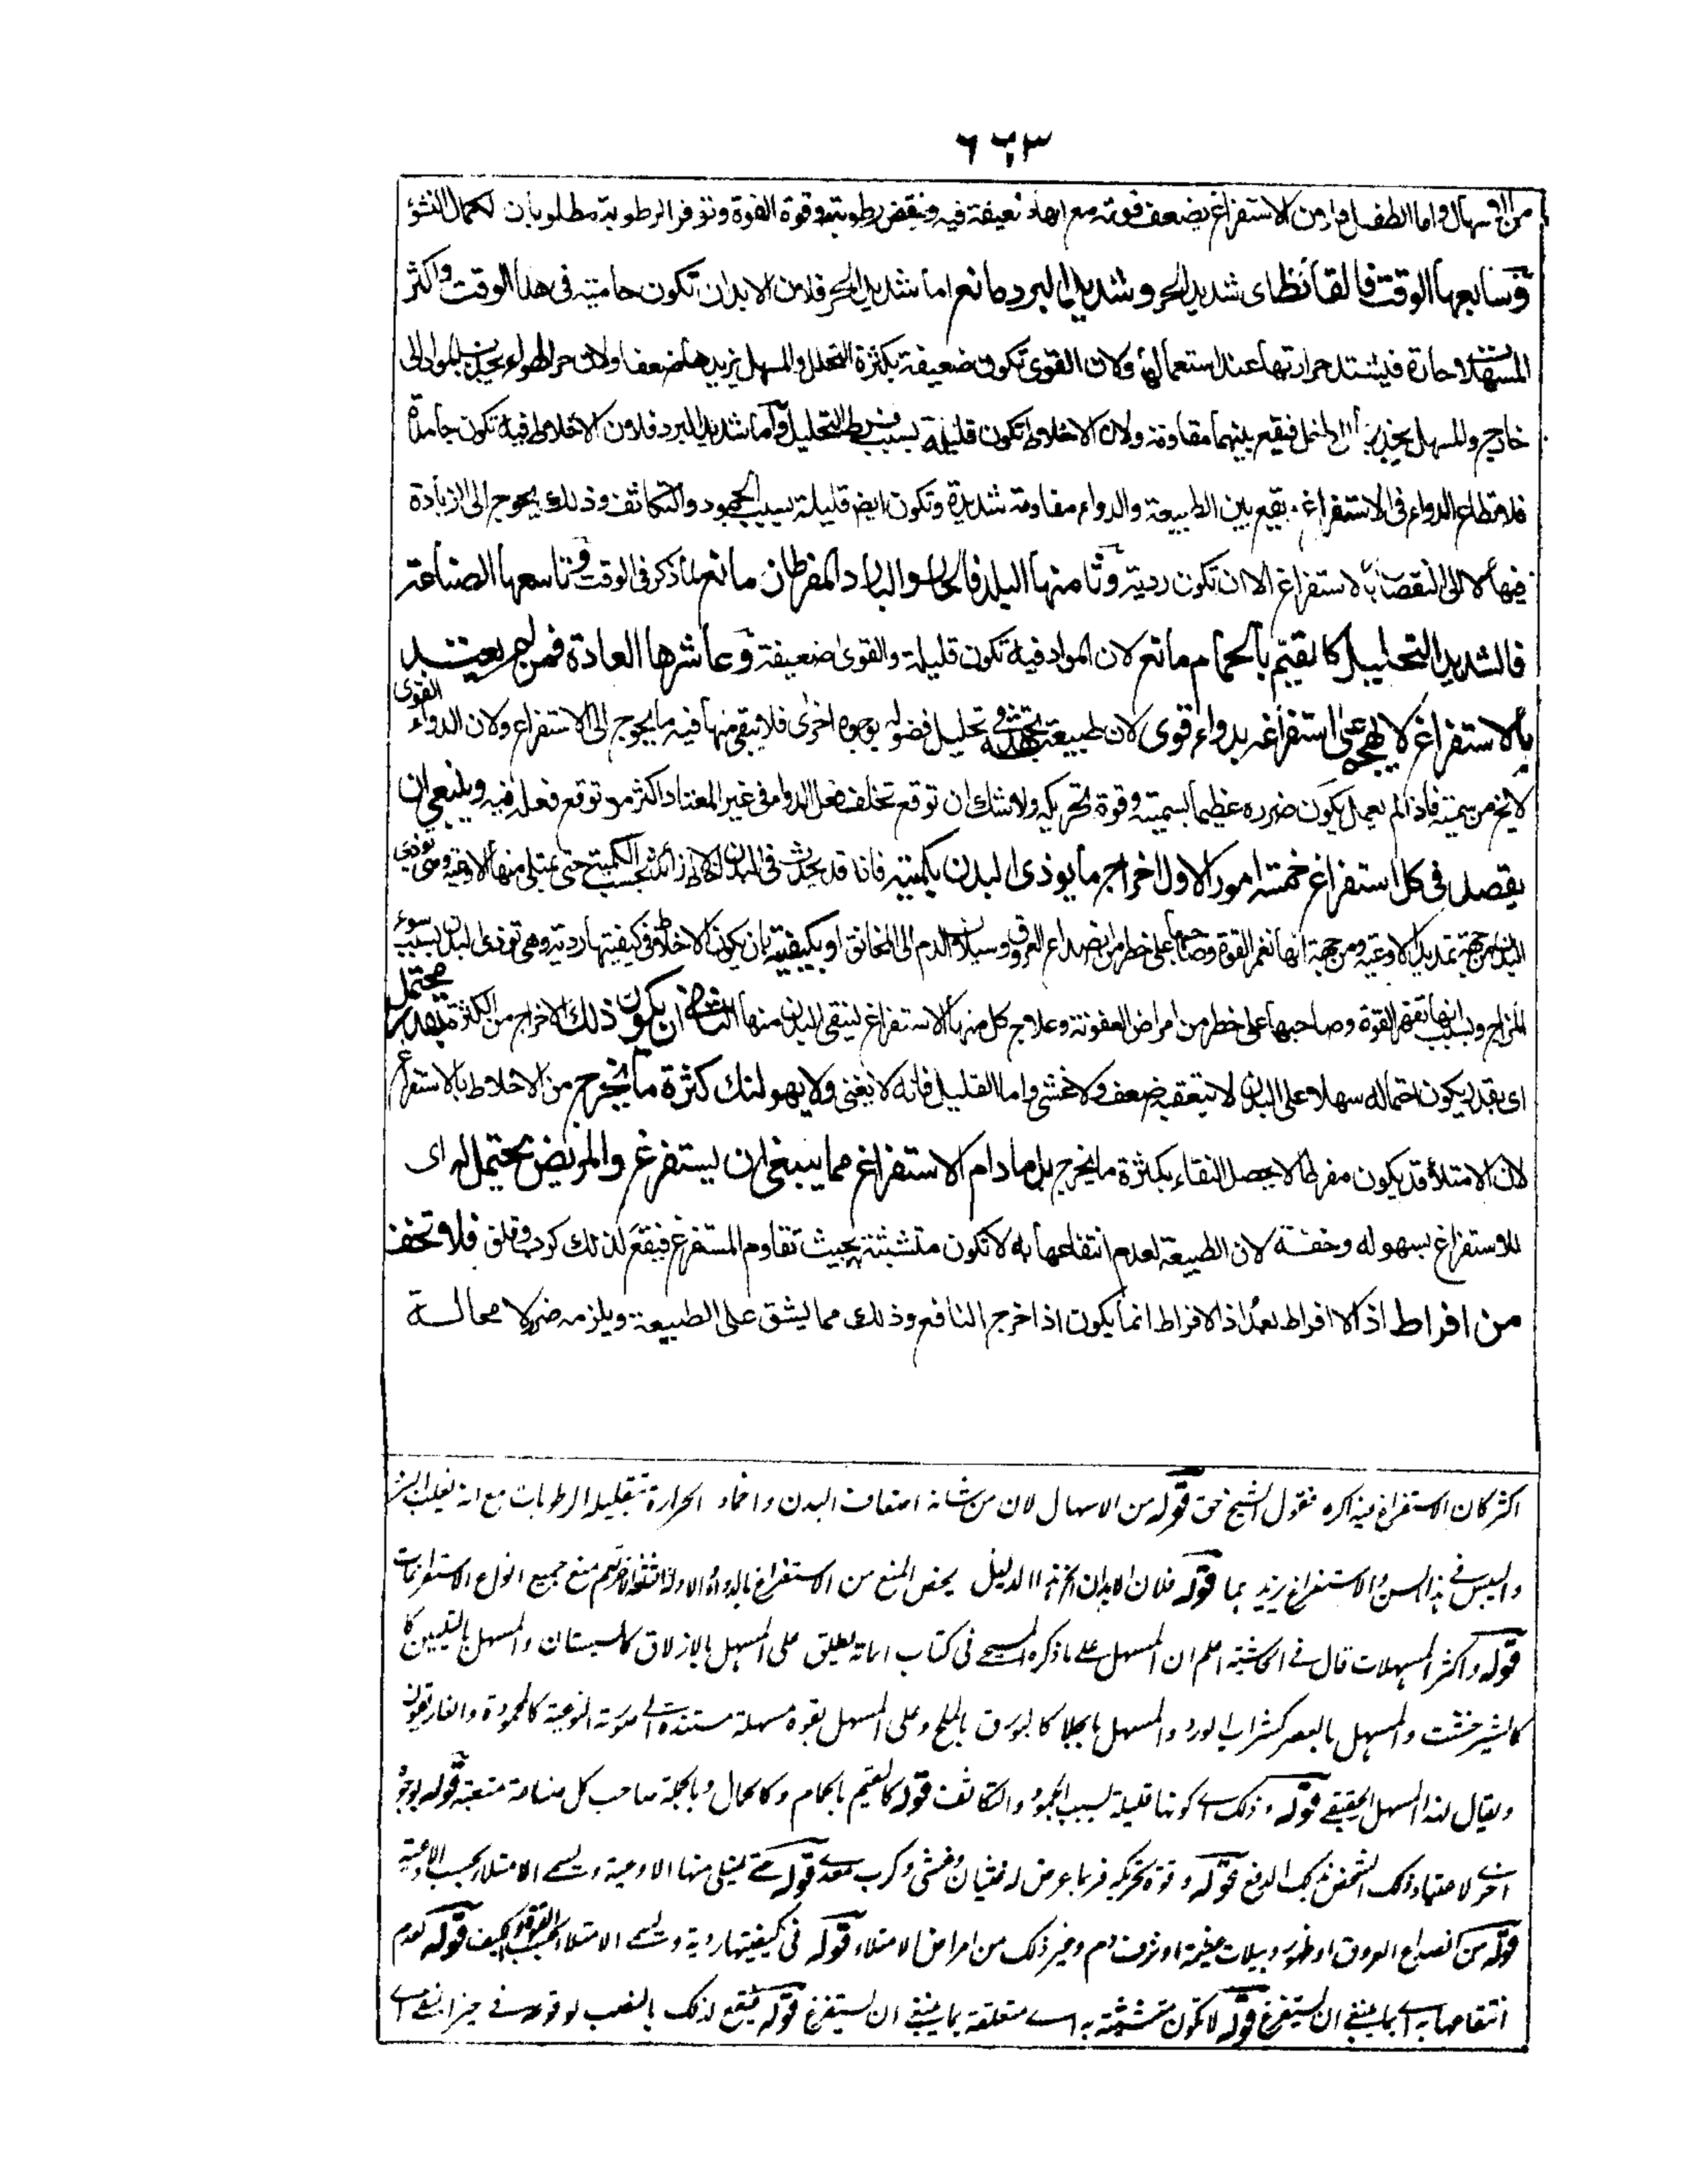 ٦٦٣
من الاسهال واما الطفل فلان الاستفراغ يضعف قوته مع انها ضعيفة فيه وينقص رطوبته وقوة القوة وتوفر الرطوبة مطلوبان لكمال النشو
وسابعها الوقت فالقائظ اى شديد الحر وشديد البرد مانع اما شديد الحر فلان الابدان تكون حامية فى هذا الوقت واكثر
المسهلات حارة فيشتد حرارتها عند استعمالها ولان القوى تكون ضعيفة بكثرة التحلل والمسهل يزيدها ضعفا ولان حر الهواء يجذب المواد الى
خارج والمسهل يجذبها الى داخل فيقع بينهما مقاومة ولان الاخلاط تكون قليلة بسبب فرط التحليل واما شديد البرد فلان الاخلاط فيه تكون جامدة
فلا تطاع الدواء فى الاستفراغ يقع بين الطبيعة والدواء مقاومة شديدة وتكون ايضا قليلة بسبب الجمود والتكاثف وذلك يحوج الى الزيادة
فيها لا الى النقصان بالاستفراغ الا ان تكون ردية وثامنها البلد فالحار والبارد المفرطان مانع لما ذكر فى الوقت وتاسعها الصناعة
فالشديد التحليل كالقيم بالحمام مانع لان المواد فيه تكون قليلة والقوى ضعيفة وعاشرها العادة فمن لم يعتد
بالاستفراغ لا يهجم على استفراغه بدواء قوى لان طبيعته تجتهد فى تحليل فضوله بوجوه اخرى فلا يبقى منها فيه ما يحوج الى الاستفراغ ولان الدواء القوى
لا يخ من سمية فاذا لم يعمل يكون ضرره عظيما بسميته وقوة تحريكه ولا شك ان توقع تخلف فعل الدواء فى غير المعتاد اكثر من توقع فعله فيه وينبغى ان
يقصد فى كل استفراغ خمسة امور الاول اخراج ما يوذى البدن بكميته فانه قد يحدث فى البدن اخلاط زائدة بحسب الكمية حتى يمتلى منها الاوعية وهى توذى
البدن من جهة تمديد الاوعية ومن جهة انها تغمر القوة وصاحبها على خطر من انصداع العروق وسيلان الدم الى المخانق او بكيفيته بان يكون الاخلاط فى كيفيتها ردية وهى توذى البدن بسبب سوء
المزاج وبسبب انها تقهر القوة وصاحبها على خطر من امراض العفونة وعلاج كل منهما الاستفراغ لينقى البدن منها الثانى ان يكون ذلك الاخراج من الكثرة بقدر محتمل
اى بقدر يكون احتماله سهلا على البدن لا يتعقبه ضعف ولا غشى واما القليل فانه لا يغنى ولا يهولنك كثرة ما يخرج من الاخلاط بالاستفراغ
لان الامتلاء قد يكون مفرطا لا يحصل النقاء بكثرة ما يخرج بل ما دام الاستفراغ مما ينبغى ان يستفرغ والمريض يحتمل له اى
للاستفراغ بسهوله وخفة لان الطبيعة لعدم انتفاعها به لا تكون متشبثة بحيث تقاوم المستفرغ فيقع لذلك كرب وقلق فلا تخف
من افراط اذ لا افراط بعد اذ الافراط انما يكون اذا خرج النافع وذلك مما يشق على الطبيعة ويلزمه ضرر لا محالة
اكثر كان الاستفراغ فيه اكره فقول الشيخ حق قوله من الاسهال لان من شانه اضعاف البدن واخماد الحرارة بتقليله الرطوبات مع انه يغلب البرد
واليبس فى هذا السن والاستفراغ يزيد بها قوله فلان الابدان الخ هذا الدليل يخص المنع من الاستفراغ بالدواء منع جميع انواع الاستفراغات
قوله واكثر المسهلات قال فى الحاشية اعلم ان المسهل على ما ذكره المسيحى فى كتاب المائة يطلق على المسهل بالازلاق كالسبستان والمسهل بالتليين كا
كالشيرخشت والمسهل بالعصر كشراب الورد والمسهل بالجلا كالبورق بالملح وعلى المسهل بقوة مسهلة مستندة الى صورته النوعية كالمحمودة والغاريقون
ويقال لهذا المسهل الحقيقى قوله وذلك اى كونها قليلة بسبب الجمود والتكاثف قوله كالقيم بالحمام وكالحمال وبالجملة صاحب كل صناعة متعبة قوله بوجوه
اخرى لاعتياد ذلك الشخص بذلك الدفع قوله وقوة تحريكه فربما عرض له غثيان وغشى وكرب معدى قوله حتى يمتلى منها الاوعية ويسمى الامتلاء بحسب الاوعية
قوله من انصداع العروق او ظهور دبيلات عظيمة او نزف دم وغير ذلك من امراض الامتلاء قوله فى كيفيتها ردية ويسمى الامتلاء بحسب القوة والكيف قوله لعدم
انتفاعها به اى بما ينبغى ان يستفرغ قوله لا تكون متشبثة به اى متعلقة بما ينبغى ان يستفرغ قوله فيقع لذلك بالنصب لوقوعه فى حيز النفى اى